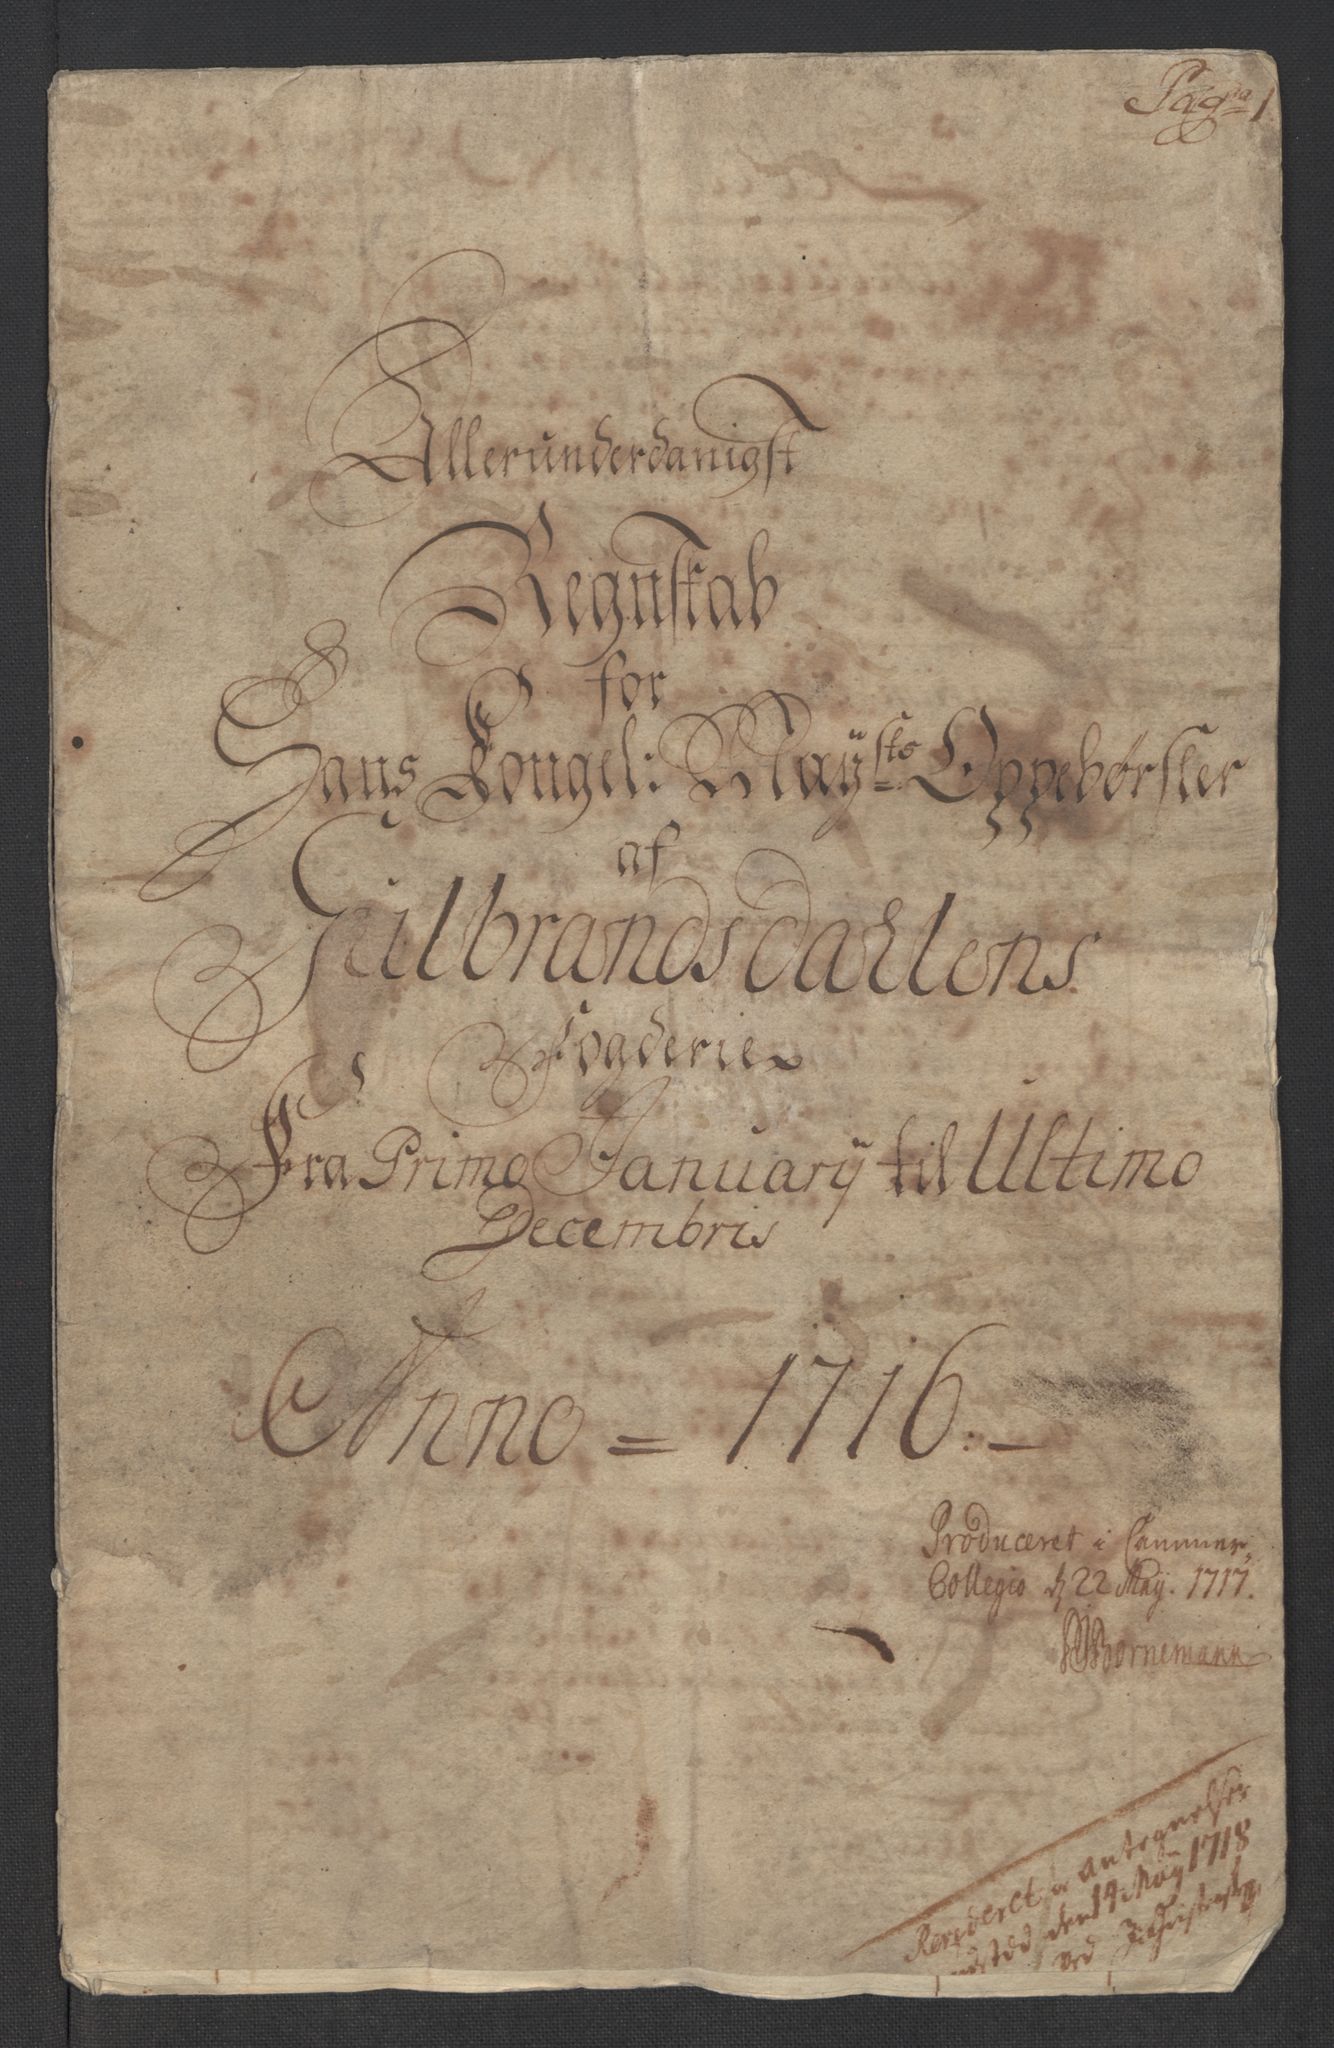 Pag: 1
Allerunderdanigst
Regnskab
for
Hans Kongel: Maÿ:sts Oppebørsler
af
Gulbrandsdahlens
Fogderie
Fra Primo Januarÿ til Ultimo
Decembris
Anno = 1716. -
Produceret i Cammer
Collegio d 22 Maÿ. 1717.
Bornemann
Revideret antegnelser
den 14 Maÿ 1718
ved